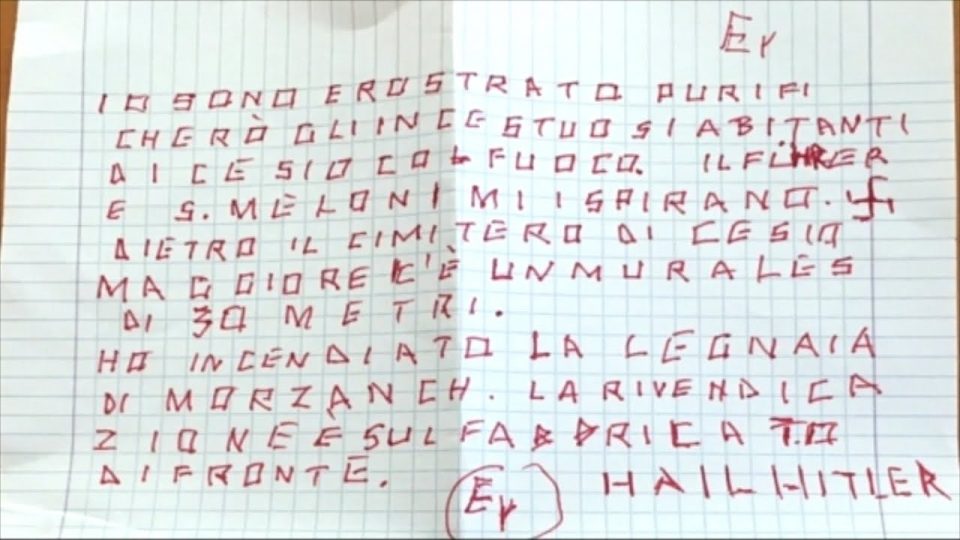 Er
IO SONO EROSTRATO PURIFI
CHERÒ GLI INCESTUOSI ABITANTI
DI CESIO COL FUOCO. IL FÜHRER
E S. MELONI MI ISPIRANO. 卐
DIETRO IL CIMITERO DI CESIO
MAGGIORE C'È UN MURALES
DI 30 METRI.
HO INCENDIATO LA LEGNAIA
DI MORZANCH. LA RIVENDICA
ZIONE E SUL FABBRICATO
DI FRONTE.
Er HAIL HITLER